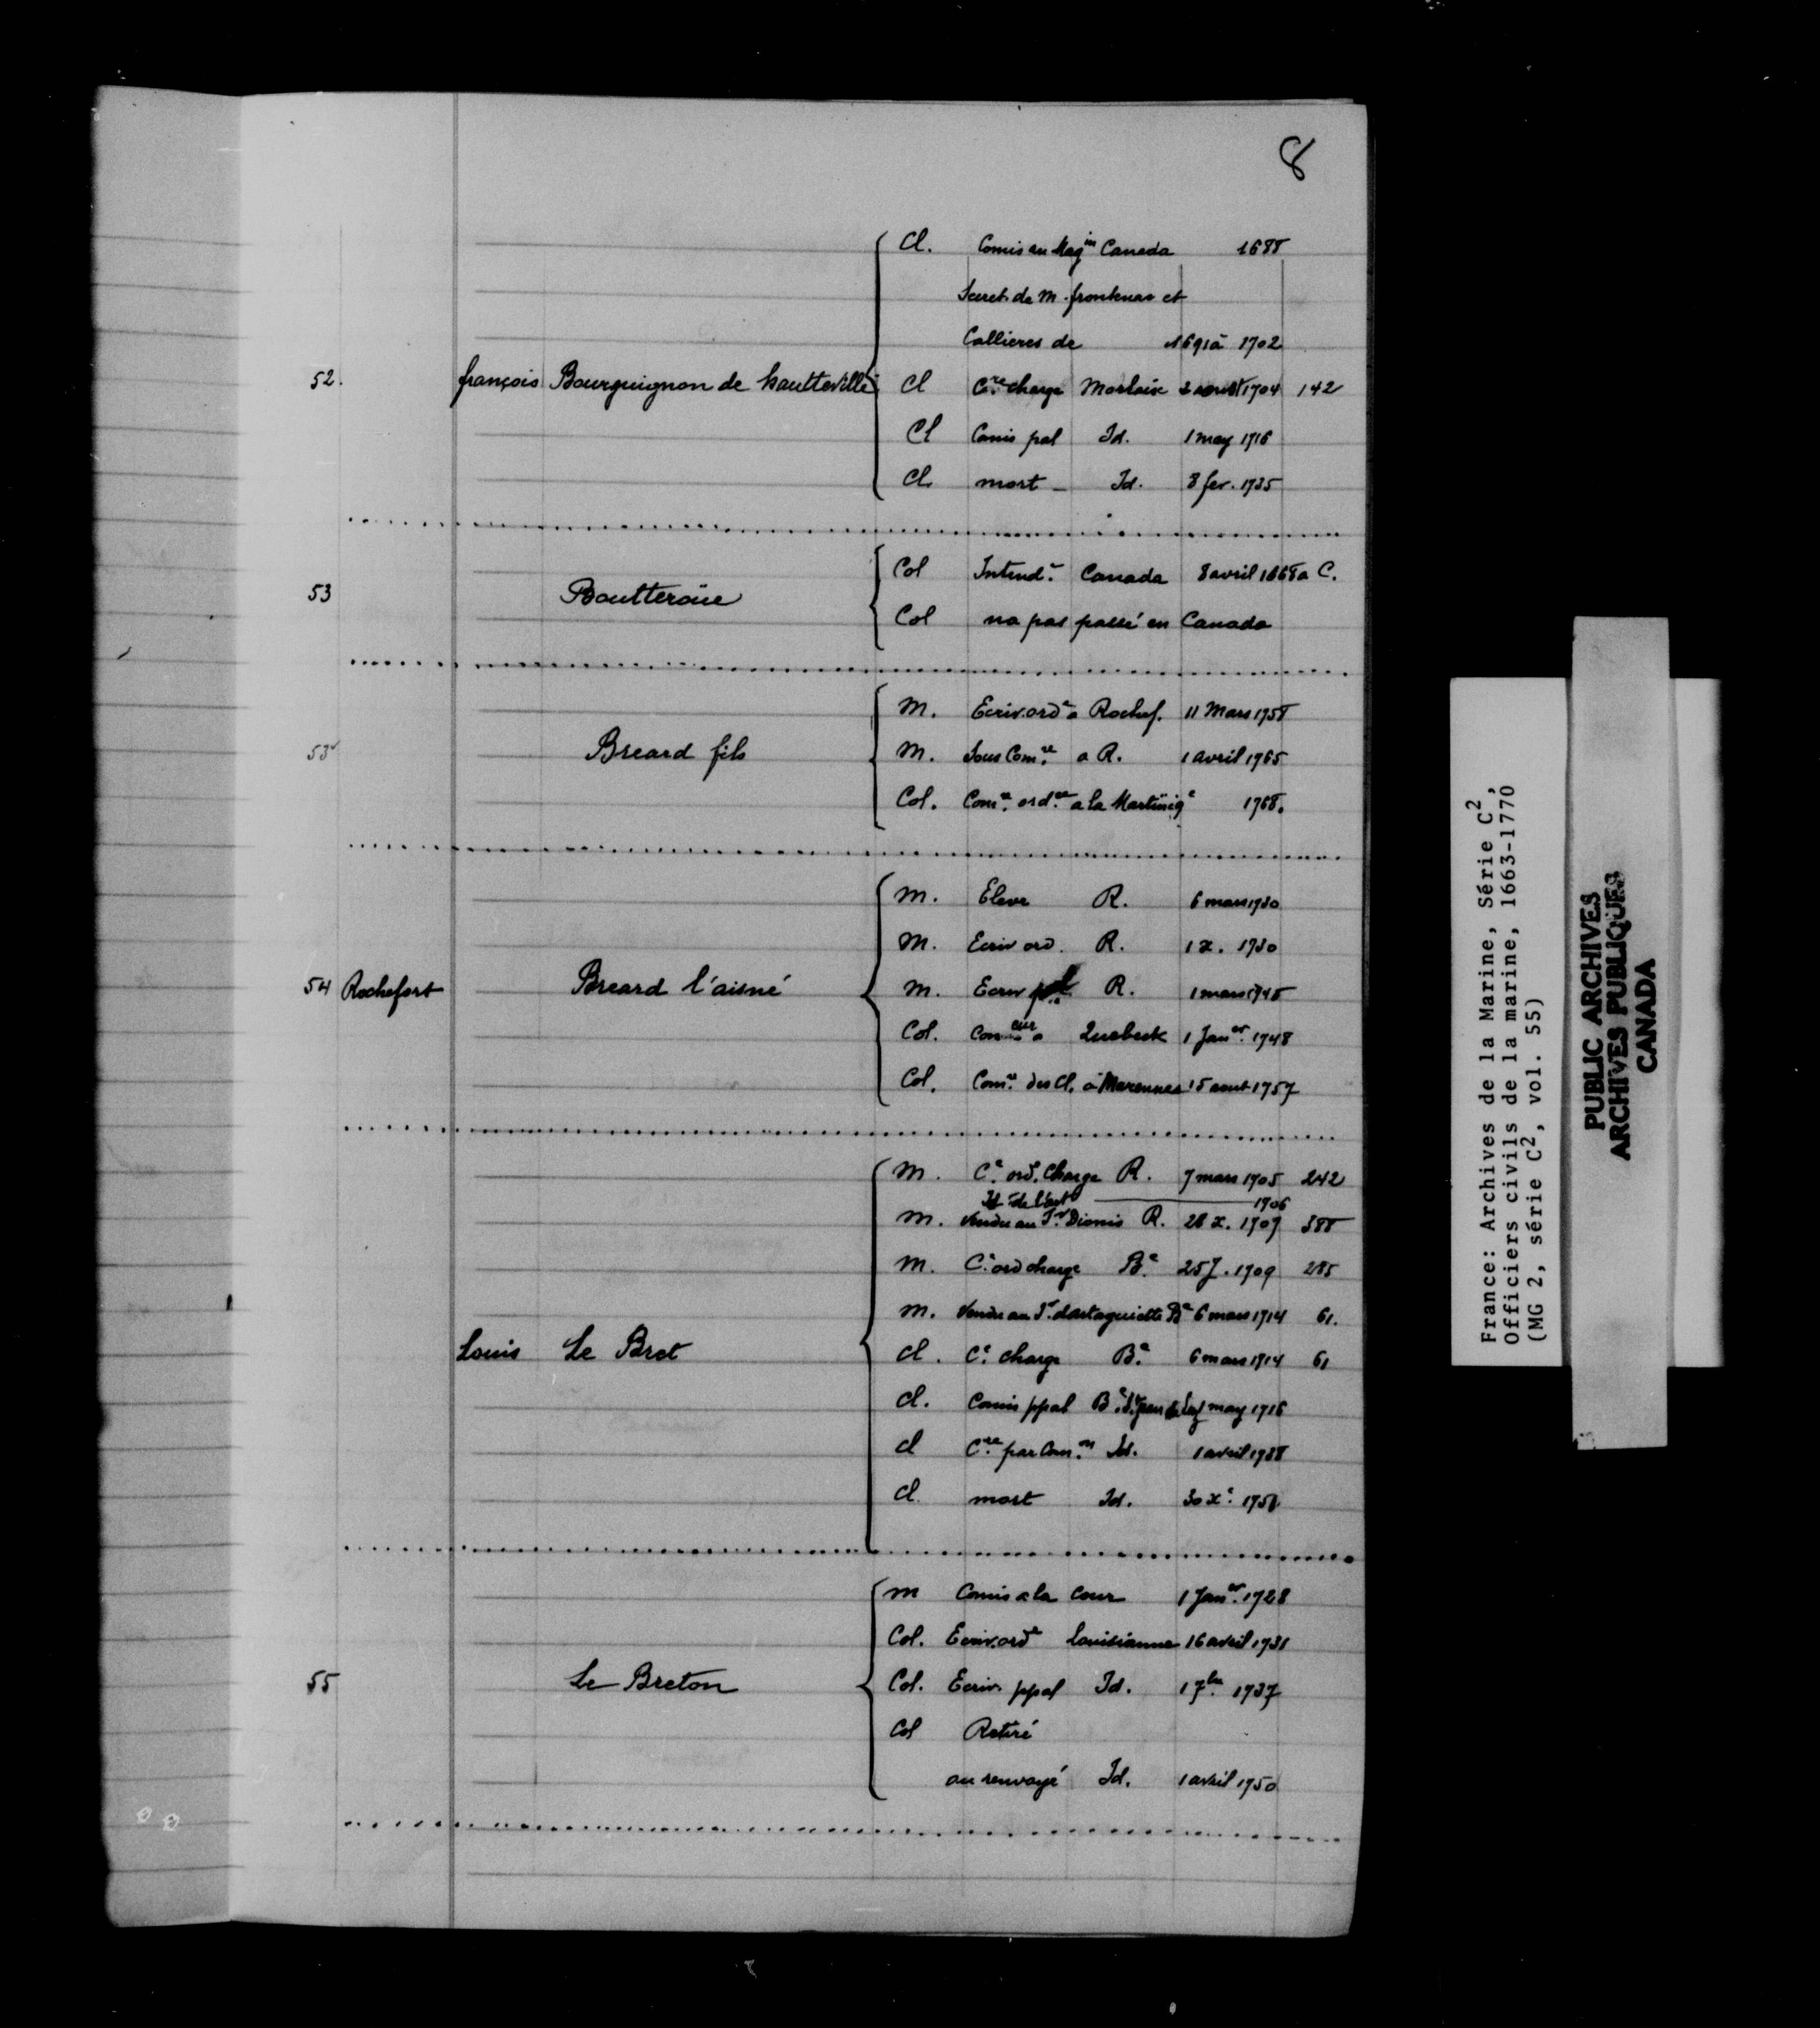 8
Cl. Comis au Mag.in Canada 1688
Secret. de M. frontenac et
Callieres de 1691 à 1702
52. françois Bourguignon de hautteville Cl C.re charge Morlaix 2 aoust 1704 142
Cl Comis pal Id. 1 may 1716
Cl. mort _ Id. 8 fev. 1735
Col Intend.t Canada 8 avril 1668 a C.
53 Boutteroüe
Col na pas passé en Canada
M. Ecriv. ord.e a Rochef. 11 Mars 1758
53 Breard fils M. Sous Com.re a R. 1 avril 1765
Col. Com.re ord.re a la Martiniq.e 1768.
M. Eleve R. 6 mars 1730
M. Ecriv ord. R. 1 x. 1730
54 Rochefort Breard l'aisné M. Ecriv pal R. 1 mars 1745
Col. Con.eur a Quebeck 1 Jan.er 1748
Col. Com.re des Cl. à Marennes 15 aout 1757
M. C.e ord. charge R. 7 mars 1705 242
Id de l'art 1706
M. Vendu au S.r Dionis R. 28 x. 1707 388
M. C.e ord charge B.e 25 7. 1709 285
M. Vendu au S.r dartaguiette B.e 6 mars 1714 61.
Louis Le Bret Cl. C.e charge B.e 6 mars 1714 61
Cl. Comis ppal B.e S.t Jean de Luz may 1716
Cl C.re par Com.on Id. 1 avril 1738
Cl. mort Id. 30 x.e
M Comis a la Cour 1 Jan.er 1728
Col. Ecriv. ord.e Louisianne 16 avril 1731
55 Le Breton Col. Ecriv. ppal Id. 1 7.bre 1737
Col Retiré
ou renvoyé Id. 1 avril 1750
France: Archives de la Marine, Série C2,
Officiers civils de la marine, 1663-1770
(MG 2, série C2, vol. 55)
PUBLIC ARCHIVES
ARCHIVES PUBLIQUES
CANADA